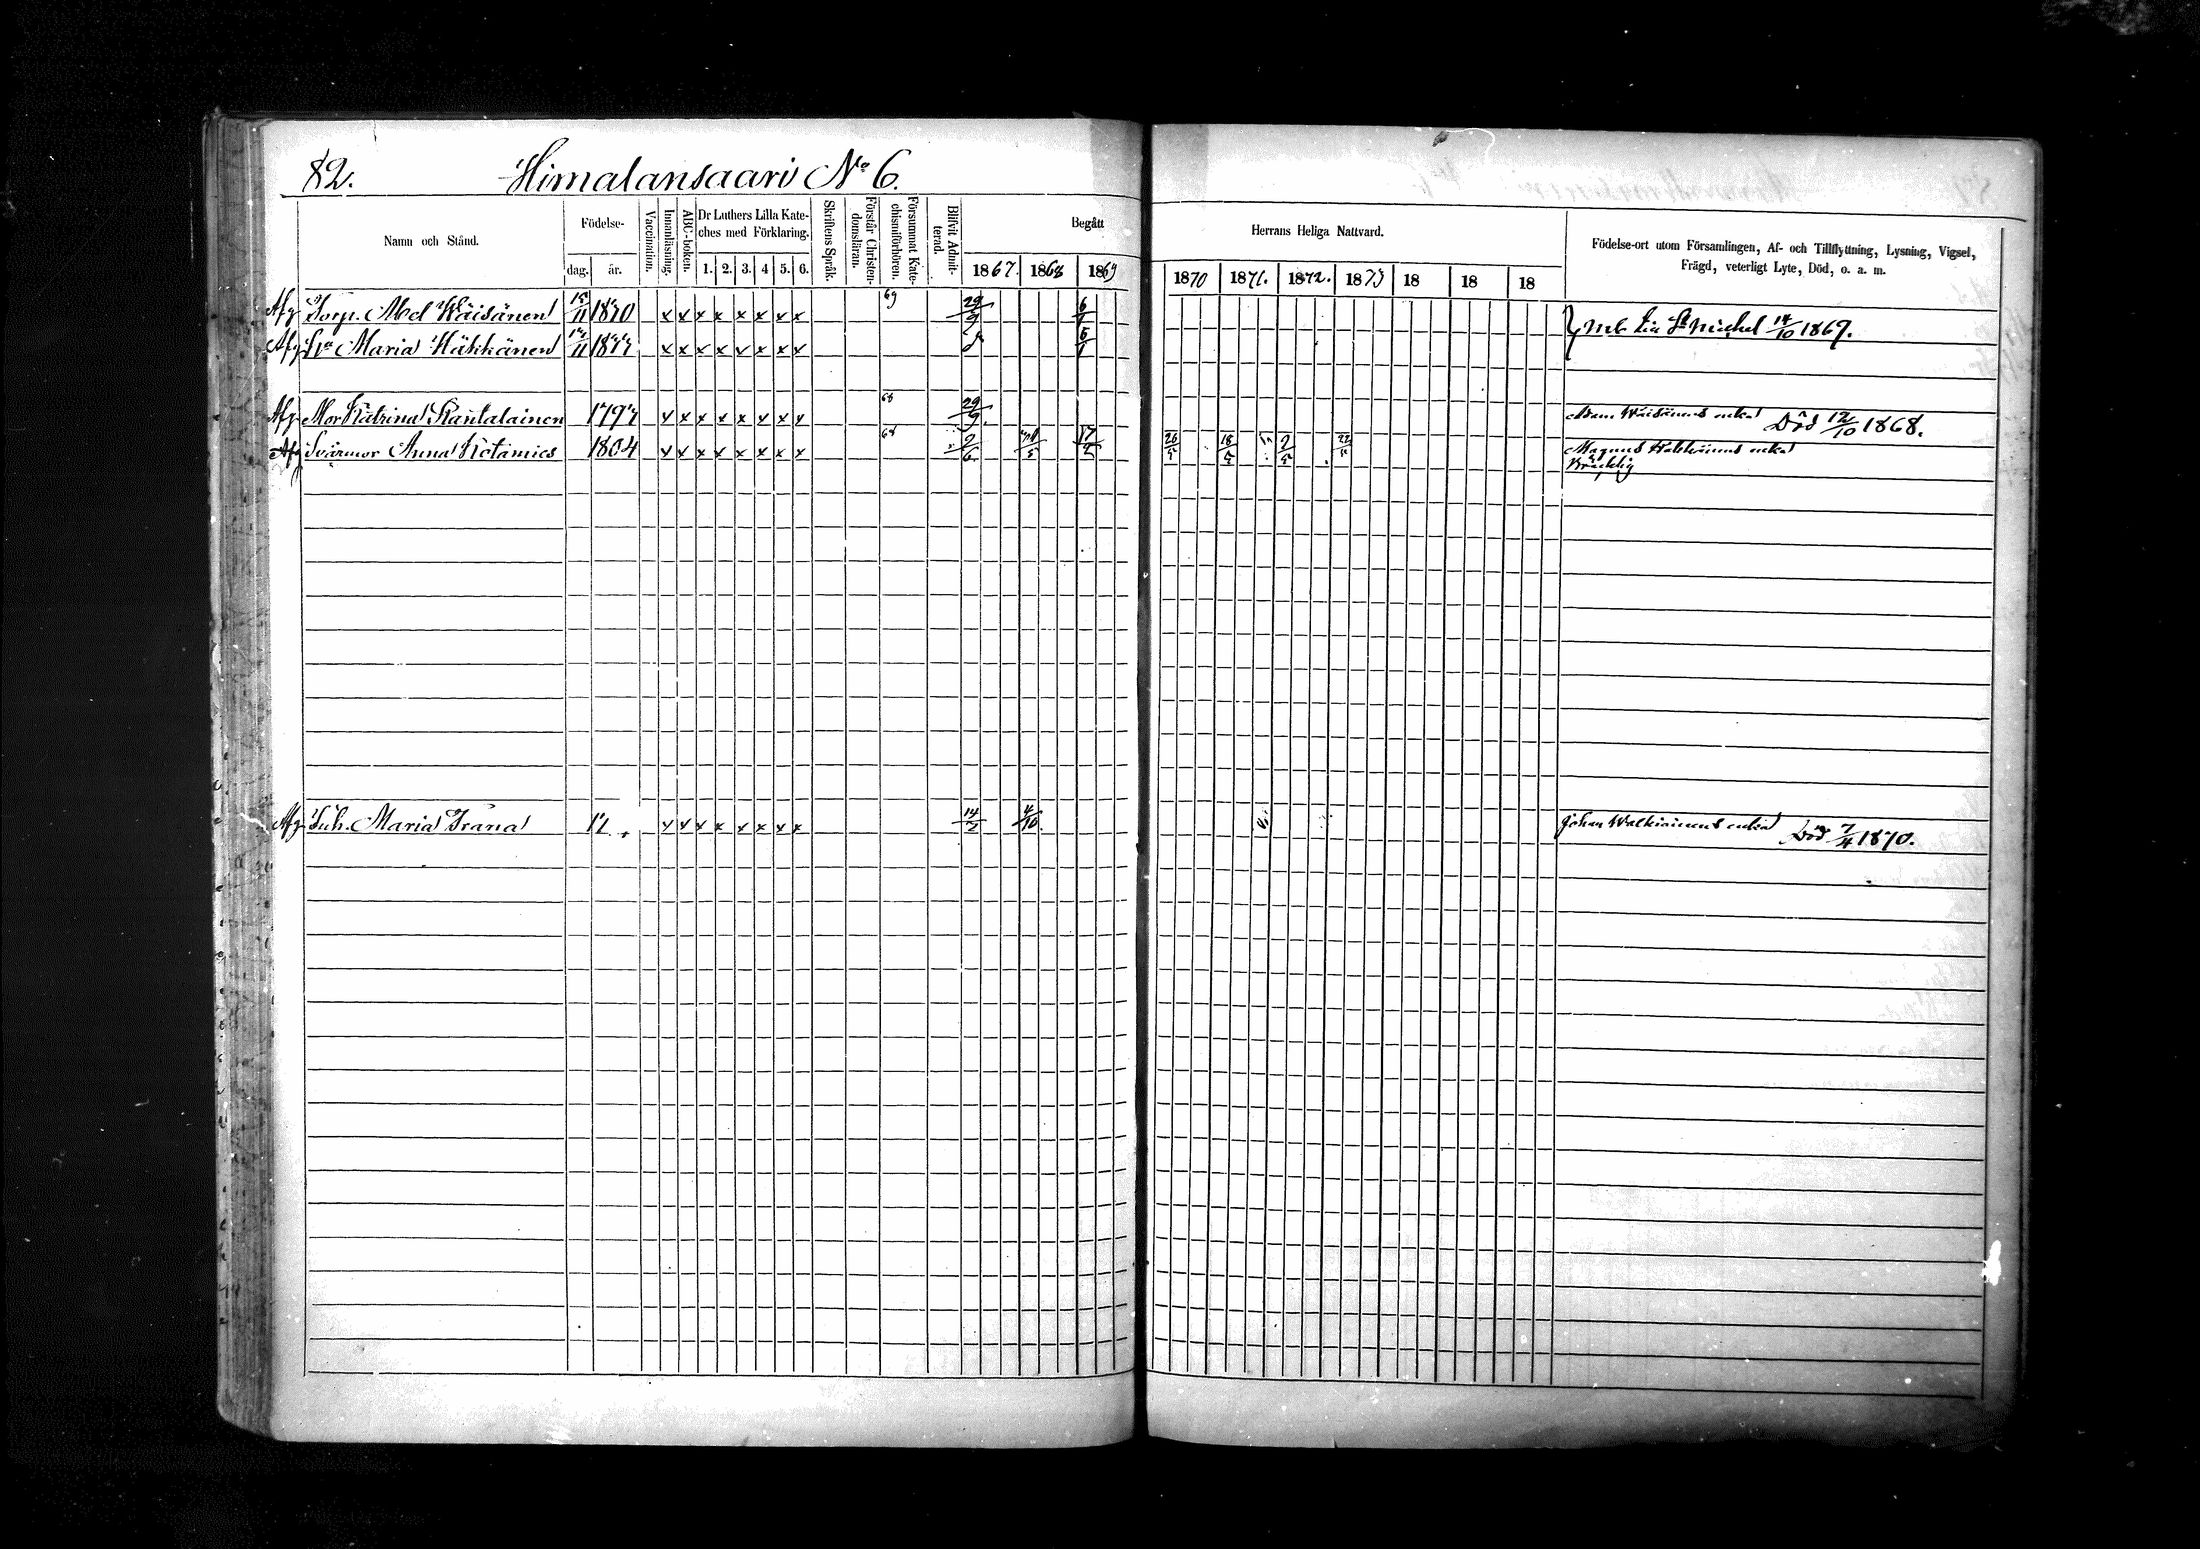 82. Himalansaari No 6.
Namn och Stånd.
Födelse-
dag. år.
Vaccination.
Innanläsning.
ABC-boken.
Dr Luthers Lilla Kate-
ches med Förklaring.
1. 2. 3. 4 5. 6.
Skriftens Språk.
Förstår Christen-
domsläran.
Försummat Kate-
chismiförhören.
Blifvit Admit-
terad.
Begått
1867. 1868 1869
Herrans Heliga Nattvard.
1870 1871. 1872. 1873 18 18 18
Födelse-ort utom Församlingen, Af- och Tillflyttning, Lysning, Vigsel,
Frägd, veterligt Lyte, Död, o. a. m.
Afg Torp. Abel Wäisänen 11 x x x x x x x x 69 29/9 6/1
Afg Maria Häkkänen 11 x x x x x x x x 6/1
St Michel 14/10 1869.
Afg Mor Katrina Kantalainen x x x x x x x x 68 29/9 Adam Wäisänens enka Död 12/10 1868.
Afg Svärmor Anna Kotamies 1804 x x x x x x x x 68 2/6 17 26 18 2 22 Magnus enka
Bräcklig
Afg Inh. Maria x x x x x x x x 14 4/10 Johan enka Död 7/4 1870.